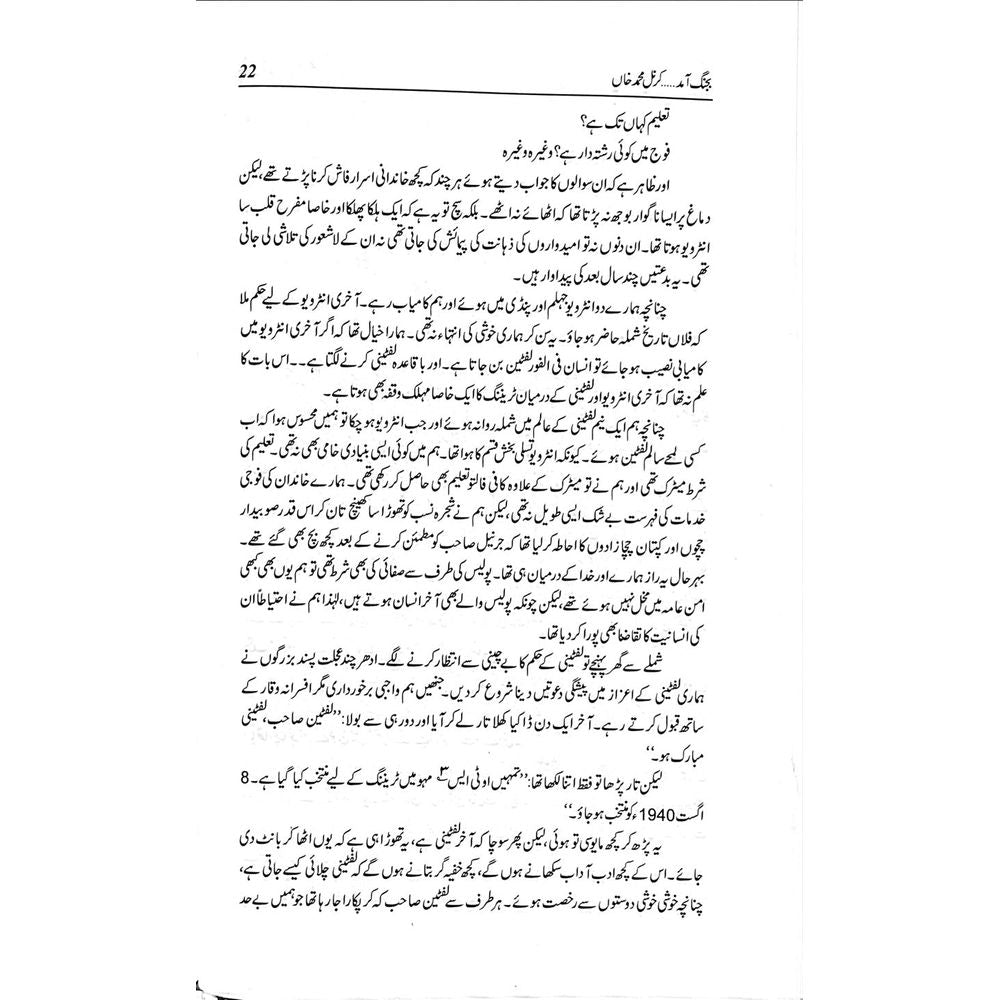 بجنگ آمد.....کرنل محمد خاں 22
تعلیم کہاں تک ہے؟
فوج میں کوئی رشتہ دار ہے؟ وغیرہ وغیرہ
اور ظاہر ہے کہ ان سوالوں کا جواب دیتے ہوئے ہر چند کہ کچھ خاندانی اسرار فاش کرنا پڑتے تھے، لیکن
دماغ پر ایسا ناگوار بوجھ نہ پڑتا تھا کہ اٹھائے نہ اٹھے۔ بلکہ سچ تو یہ ہے کہ ایک ہلکا پھلکا اور خاصا مفرح قلب سا
انٹرویو ہوتا تھا۔ ان دنوں نہ تو امیدواروں کی ذہانت کی پیمائش کی جاتی تھی نہ ان کے لاشعور کی تلاشی لی جاتی
تھی۔ یہ بدعتیں چند سال بعد کی پیداوار ہیں۔
چنانچہ ہمارے دو انٹرویو جہلم اور پنڈی میں ہوئے اور ہم کامیاب رہے۔ آخری انٹرویو کے لیے حکم ملا
کہ فلاں تاریخ شملہ حاضر ہو جاؤ۔ یہ سن کر ہماری خوشی کی انتہاء نہ تھی۔ ہمارا خیال تھا کہ اگر آخری انٹرویو میں
کامیابی نصیب ہو جائے تو انسان فی الفور لفٹین بن جاتا ہے۔ اور باقاعدہ لفٹینی کرنے لگتا ہے۔۔ اس بات کا
علم نہ تھا کہ آخری انٹرویو اور لفٹینی کے درمیان ٹریننگ کا ایک خاصا مہلک وقفہ بھی ہوتا ہے۔
چنانچہ ہم ایک نیم لفٹینی کے عالم میں شملہ روانہ ہوئے اور جب انٹرویو ہو چکا تو ہمیں محسوس ہوا کہ اب
کسی لمحے سالم لفٹین ہوئے۔ کیونکہ انٹرویو تسلی بخش قسم کا ہوا تھا۔ ہم میں کوئی ایسی بنیادی خامی بھی نہ تھی۔ تعلیم کی
شرط میٹرک تھی اور ہم نے تو میٹرک کے علاوہ کافی فالتو تعلیم بھی حاصل کر رکھی تھی۔ ہمارے خاندان کی فوجی
خدمات کی فہرست بے شک ایسی طویل نہ تھی، لیکن ہم نے شجرہ نسب کو تھوڑا سا کھینچ تان کر اس قدر صوبیدار
چچوں اور کپتان چچا زادوں کا احاطہ کر لیا تھا کہ جرنیل صاحب کو مطمئن کرنے کے بعد کچھ بچ بھی گئے تھے۔
بہر حال یہ راز ہمارے اور خدا کے درمیان ہی تھا۔ پولیس کی طرف سے صفائی کی بھی شرط تھی تو ہم یوں بھی کبھی
امن عامہ میں مخل نہیں ہوئے تھے، لیکن چونکہ پولیس والے بھی آخر انسان ہوتے ہیں، لہٰذا ہم نے احتیاطاً ان
کی انسانیت کا تقاضا بھی پورا کر دیا تھا۔
شملے سے گھر پہنچے تو لفٹینی کے حکم کا بے چینی سے انتظار کرنے لگے۔ ادھر چند عجلت پسند بزرگوں نے
ہماری لفٹینی کے اعزاز میں پیشگی دعوتیں دینا شروع کر دیں۔ جنھیں ہم واجبی برخورداری مگر افسرانہ وقار کے
ساتھ قبول کرتے رہے۔ آخر ایک دن ڈاکیا کھلا تار لے کر آیا اور دور ہی سے بولا: ’’لفٹین صاحب، لفٹینی
مبارک ہو۔‘‘
لیکن تار پڑھا تو فقط اتنا لکھا تھا: ’’تمہیں او ٹی ایس۳ مہو میں ٹریننگ کے لیے منتخب کیا گیا ہے۔ 8
اگست 1940ء کو منتخب ہو جاؤ۔‘‘
یہ پڑھ کر کچھ مایوسی تو ہوئی، لیکن پھر سوچا کہ آخر لفٹینی ہے، یہ تھوڑا ہی ہے کہ یوں اٹھا کر بانٹ دی
جائے۔ اس کے کچھ ادب آداب سکھانے ہوں گے، کچھ خفیہ گر بتانے ہوں گے کہ لفٹینی چلائی کیسے جاتی ہے،
چنانچہ خوشی خوشی دوستوں سے رخصت ہوئے۔ ہر طرف سے لفٹین صاحب کہ کر پکارا جا رہا تھا جو ہمیں بے حد